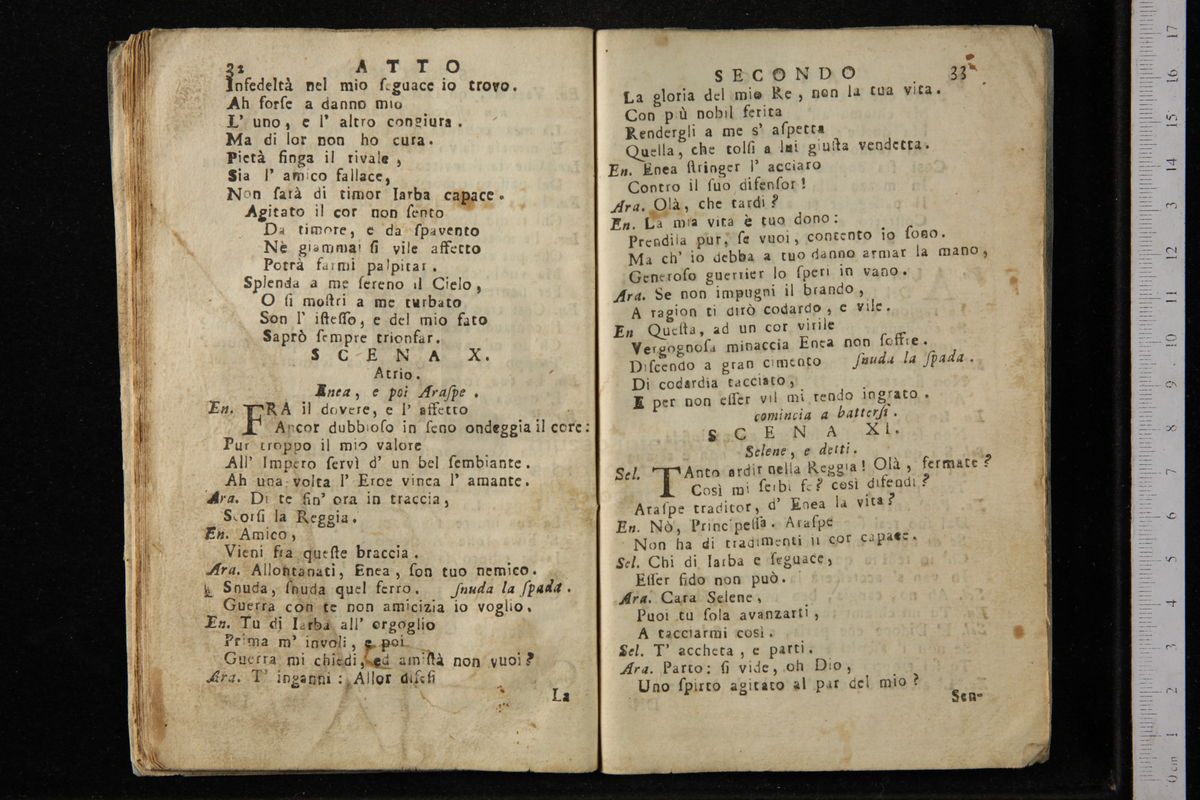 32 ATTO
Infedeltà nel mio ſeguace io trovo.
Ah forſe a danno mio
L' uno, e l' altro congiura.
Ma di lor non ho cura.
Pietà finga il rivale,
Sia l' amico fallace,
Non ſarà di timor Iarba capace.
Agitato il cor non ſento
Da timore, e da ſpavento
Nè giammai ſi vile affetto
Potrà farmi palpitar.
Splenda a me ſereno il Cielo,
O ſi moſtri a me turbato
Son l' iſteſſo, e del mio fato
Saprò ſempre trionfar.
SCENA X.
Atrio.
Enea, e poi Araſpe.
En. FRA il dovere, e l' affetto
Ancor dubbioſo in ſeno ondeggia il core:
Pur troppo il mio valore
All' Impero ſervì d' un bel ſembiante.
Ah una volta l' Eroe vinca l' amante.
Ara. Di te fin' ora in traccia,
Scorſi la Reggia.
En. Amico,
Vieni fra queſte braccia.
Ara. Allontanati, Enea, ſon tuo nemico.
Snuda, ſnuda quel ferro. ſnuda la ſpada.
Guerra con te non amicizia io voglio.
En. Tu di Iarba all' orgoglio
Prima m' involi, e poi
Guerra mi chiedi, ed amiſtà non vuoi?
Ara. T' inganni: Allor difeſi
La
SECONDO 33
La gloria del mio Re, non la tua vita.
Con più nobil ferita
Rendergli a me s' aſpetta
Quella, che tolſi a lui giuſta vendetta.
En. Enea ſtringer l' acciaro
Contro il ſuo difenſor!
Ara. Olà, che tardi?
En. La mia vita è tuo dono:
Prendila pur, ſe vuoi, contento io ſono.
Ma ch' io debba a tuo danno armar la mano,
Generoſo guerrier lo ſperi in vano.
Ara. Se non impugni il brando,
A ragion ti dirò codardo, e vile.
En Queſta, ad un cor virile
Vergognoſa minaccia Enea non ſoffre.
Diſcendo a gran cimento ſnuda la ſpada.
Di codardia tacciato,
E per non eſſer vil mi rendo ingrato.
comincia a batterſi.
SCENA XI.
Selene, e detti.
Sel. TAnto ardir nella Reggia! Olà, fermate?
Così mi ſerbi fe? così difendi?
Araſpe traditor, d' Enea la vita?
En. Nò, Principeſſa. Araſpe
Non ha di tradimenti il cor capace.
Sel. Chi di Iarba e ſeguace,
Eſſer fido non può.
Ara. Cara Selene,
Puoi tu ſola avanzarti,
A tacciarmi così.
Sel. T' accheta, e parti.
Ara. Parto: ſi vide, oh Dio,
Uno ſpirto agitato al par del mio?
Sen-